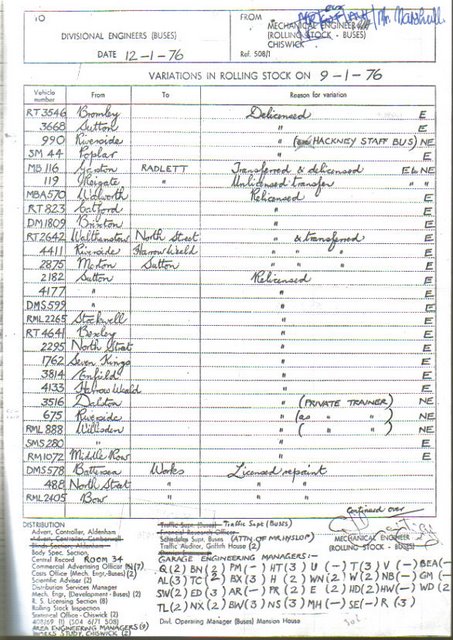 TO
DIVISIONAL ENGINEERS (BUSES)
DATE 12-1-76
FROM
MECHANICAL ENGINEER
(ROLLING STOCK - BUSES)
CHISWICK
Ref. 508/1
Mr. Marshall.
VARIATIONS IN ROLLING STOCK ON 9-1-76
Vehicle number From To Reason for variation
RT3546 Bromley Delicensed E
3668 Sutton " E
990 Riverside " (HACKNEY STAFF BUS) NE
SM 44 Poplar " E
MB 116 Garston RADLETT Transferred & delicensed E to NE
119 Reigate " Unlicensed transfer " "
MBA570 Walworth Relicensed E
RT 823 Catford " E
DM1809 Brixton " E
RT2642 Walthamstow North Street " & transferred E
4411 Riverside Harrow Weald " " " E
2875 Merton Sutton " " " E
2182 Sutton Relicensed E
4177 " " E
DMS599 " " E
RML2265 Stockwell " E
RT4641 Bexley " E
2295 North Street " E
1762 Seven Kings " E
3814 Enfield " E
4133 Harrow Weald " E
3516 Dalston " (PRIVATE TRAINER) NE
675 Riverside " (as " " ) NE
RML 888 Willesden " ( " " " ) NE
SMS280 " " E
RM1072 Middle Row " E
DMS578 Battersea Works Licensed repaint
488 North Street " " "
RML2405 Bow " " "
Continued over
DISTRIBUTION
Advert. Controller, Aldenham
Body Spec. Section
Central Record ROOM 34
Commercial Advertising Officer
Costs Office (Mech. Engr.-Buses) (2)
Scientific Adviser (2)
Distribution Services Manager
Mech. Engr. (Development - Buses) (2)
R. S. Licensing Section (8)
Rolling Stock Inspection
Statistical Office - Chiswick (2)
AREA ENGINEERING MANAGERS
WORKS STUDY, CHISWICK (2)
Traffic Supt (Buses)
Schedules Supt. Buses (ATTN OF MR HYSLOP)
Traffic Auditor, Griffith House (2)
MECHANICAL ENGINEER
(ROLLING STOCK - BUSES)
GARAGE ENGINEERING MANAGERS:-
Divl. Operating Manager (Buses) Mansion House